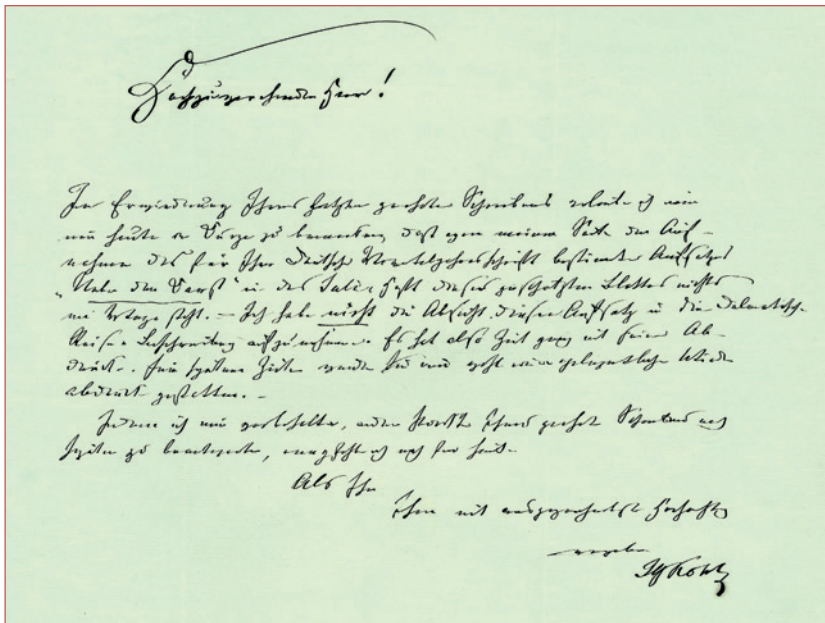 Hochzuverehrender Herr!
In Erwiederung Ihres letzten geehrten Schreibens erlaube ich mir
nur heute in Kürze zu bemerken, daß von meiner Seite der Auf-
nahme des für Ihre Deutsche Vierteljahrsschrift bestimmten Aufsatzes
"Ueber den Karst" in das Juli-Heft dieses geschätzten Blattes nichts
im Wege steht. – Ich habe nicht die Absicht diesen Aufsatz in die Dalmatische
Reise-Beschreibung aufzunehmen. Es hat also Zeit genug mit seinem Ab-
druck. Für spätere Zeiten werden Sie mir wohl eine gelegentliche Wieder
abdruck gestatten. –
Indem ich mir vorbehalte, andere Punkte Ihres geehrten Schreibens noch
später zu beantworten, empfehle ich mich für heute
Als Ihr
Ihnen mit ausgezeichnetster Hochachtung
ergebener
JGKohl